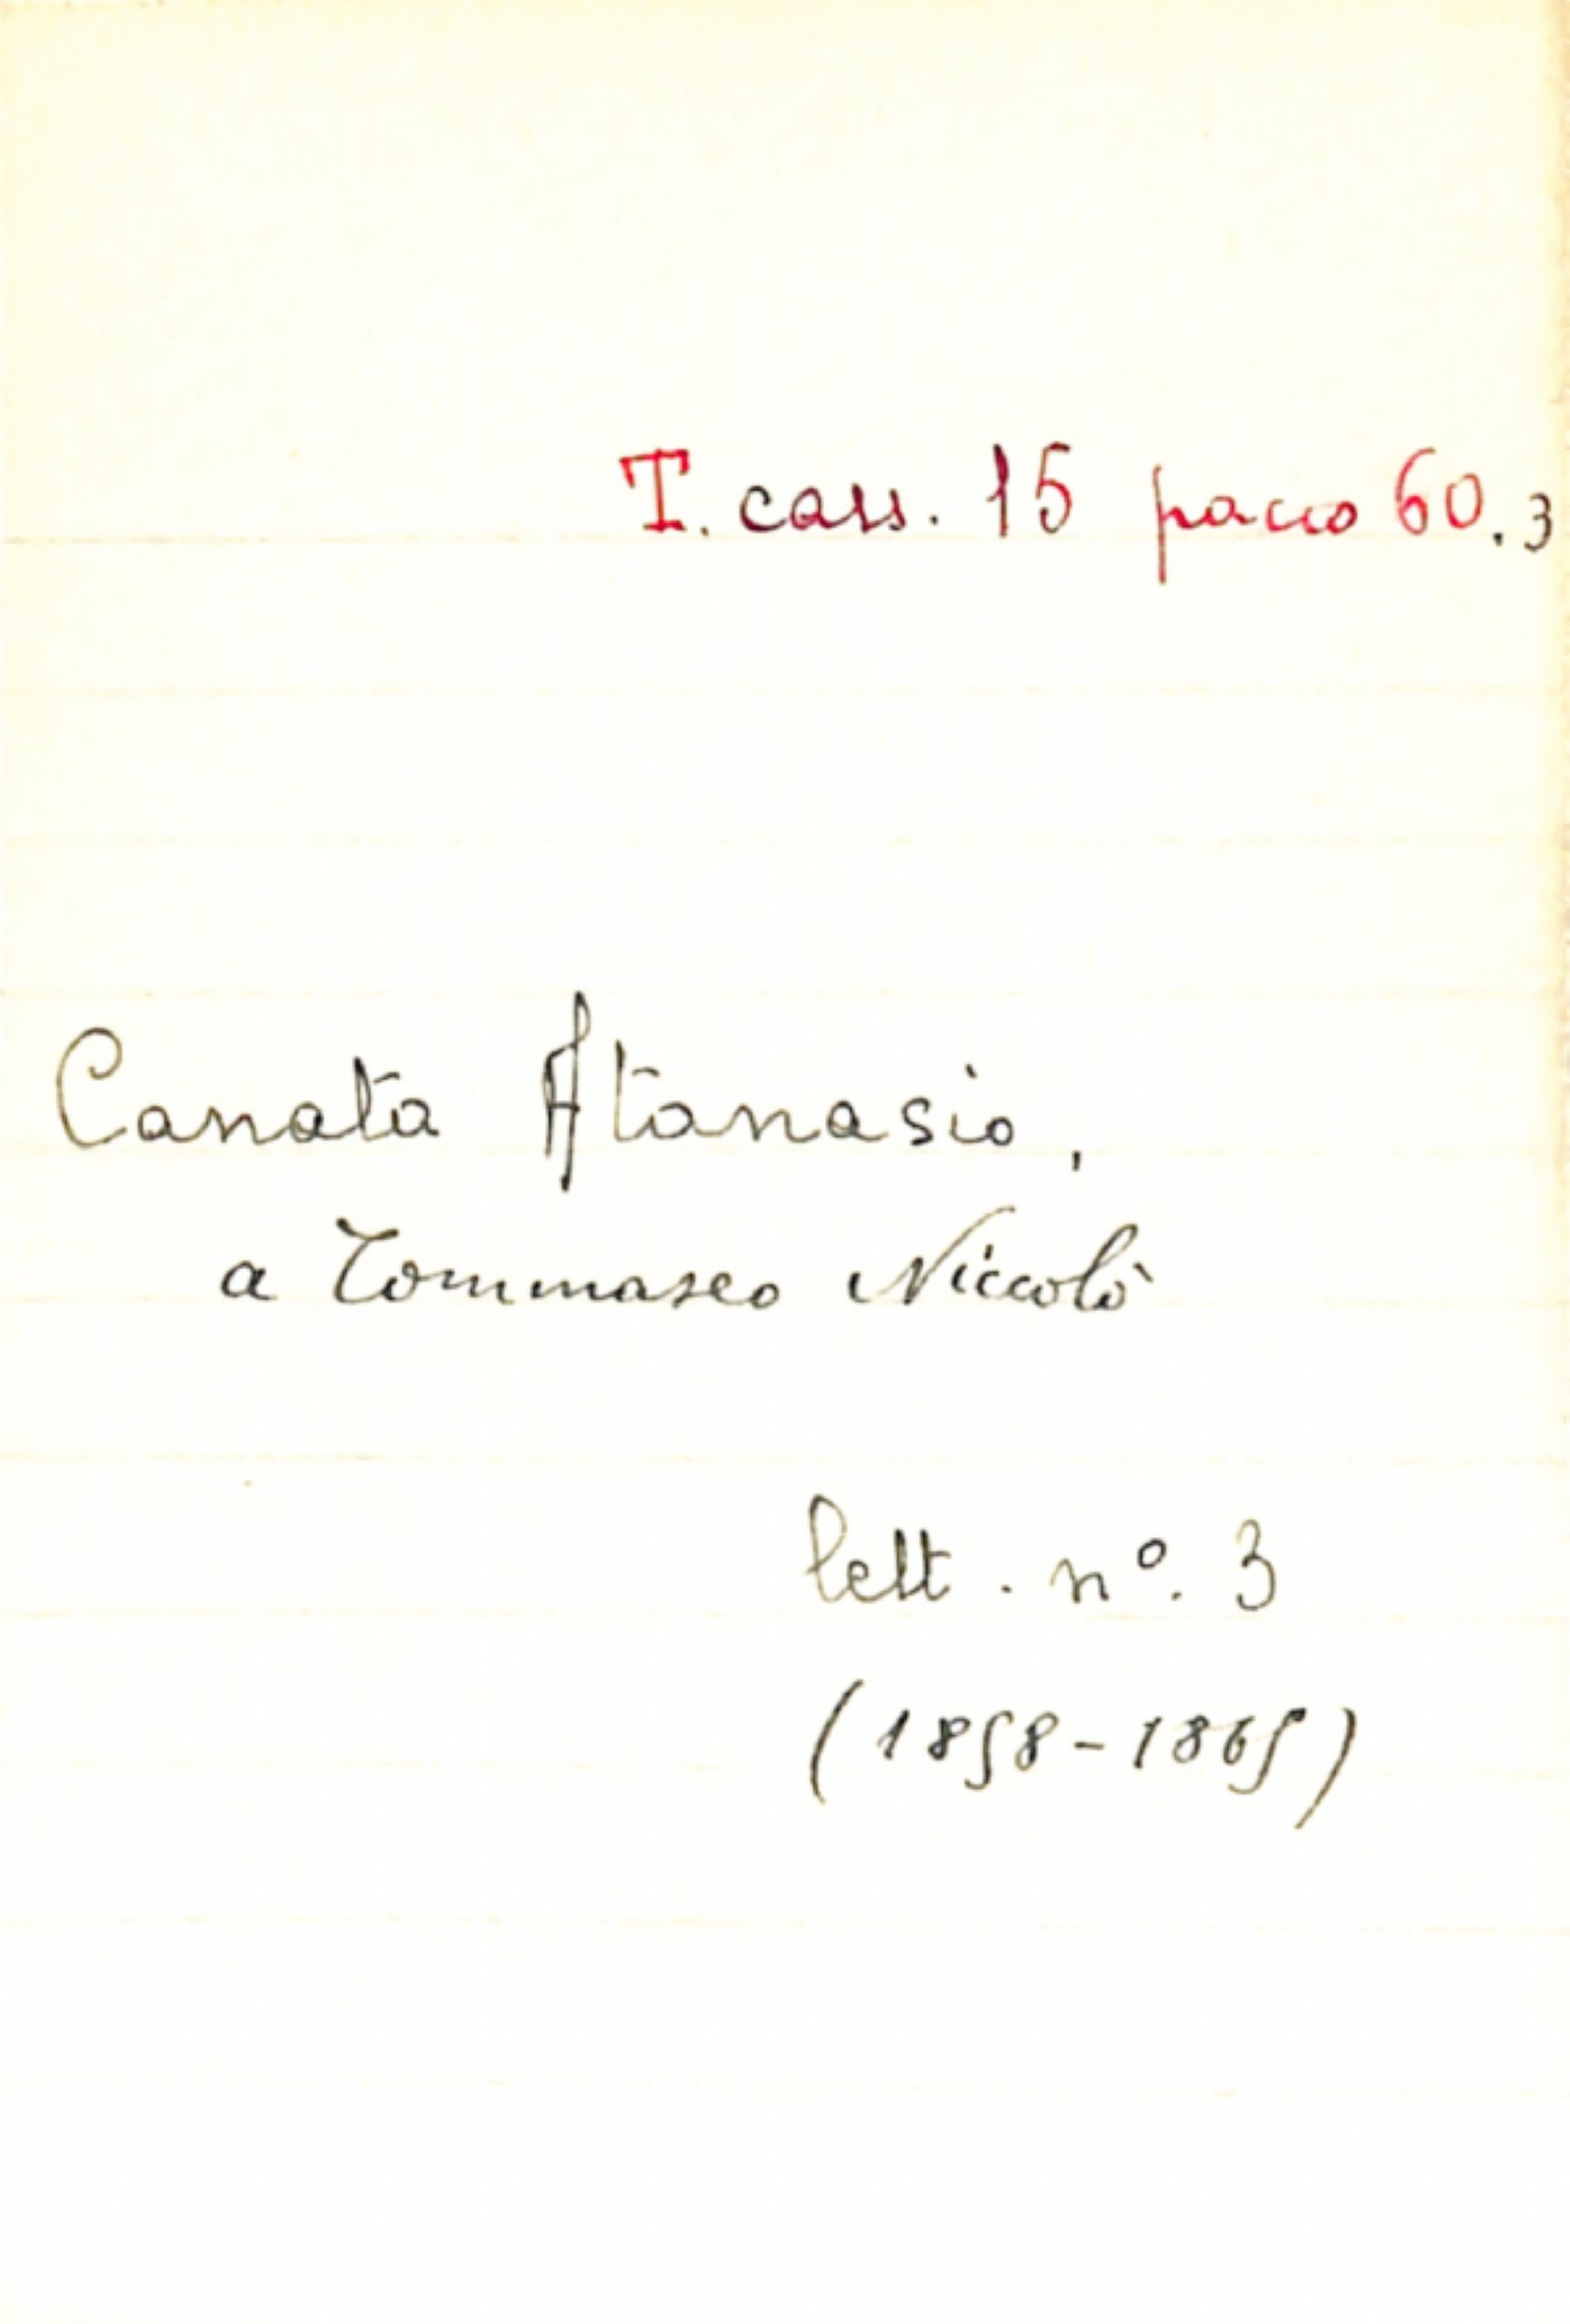 T. cass. 15 pacco 60.3
Canata Atanasio,
a Tommaseo Niccolò
lett. nº. 3
(1858-1865)